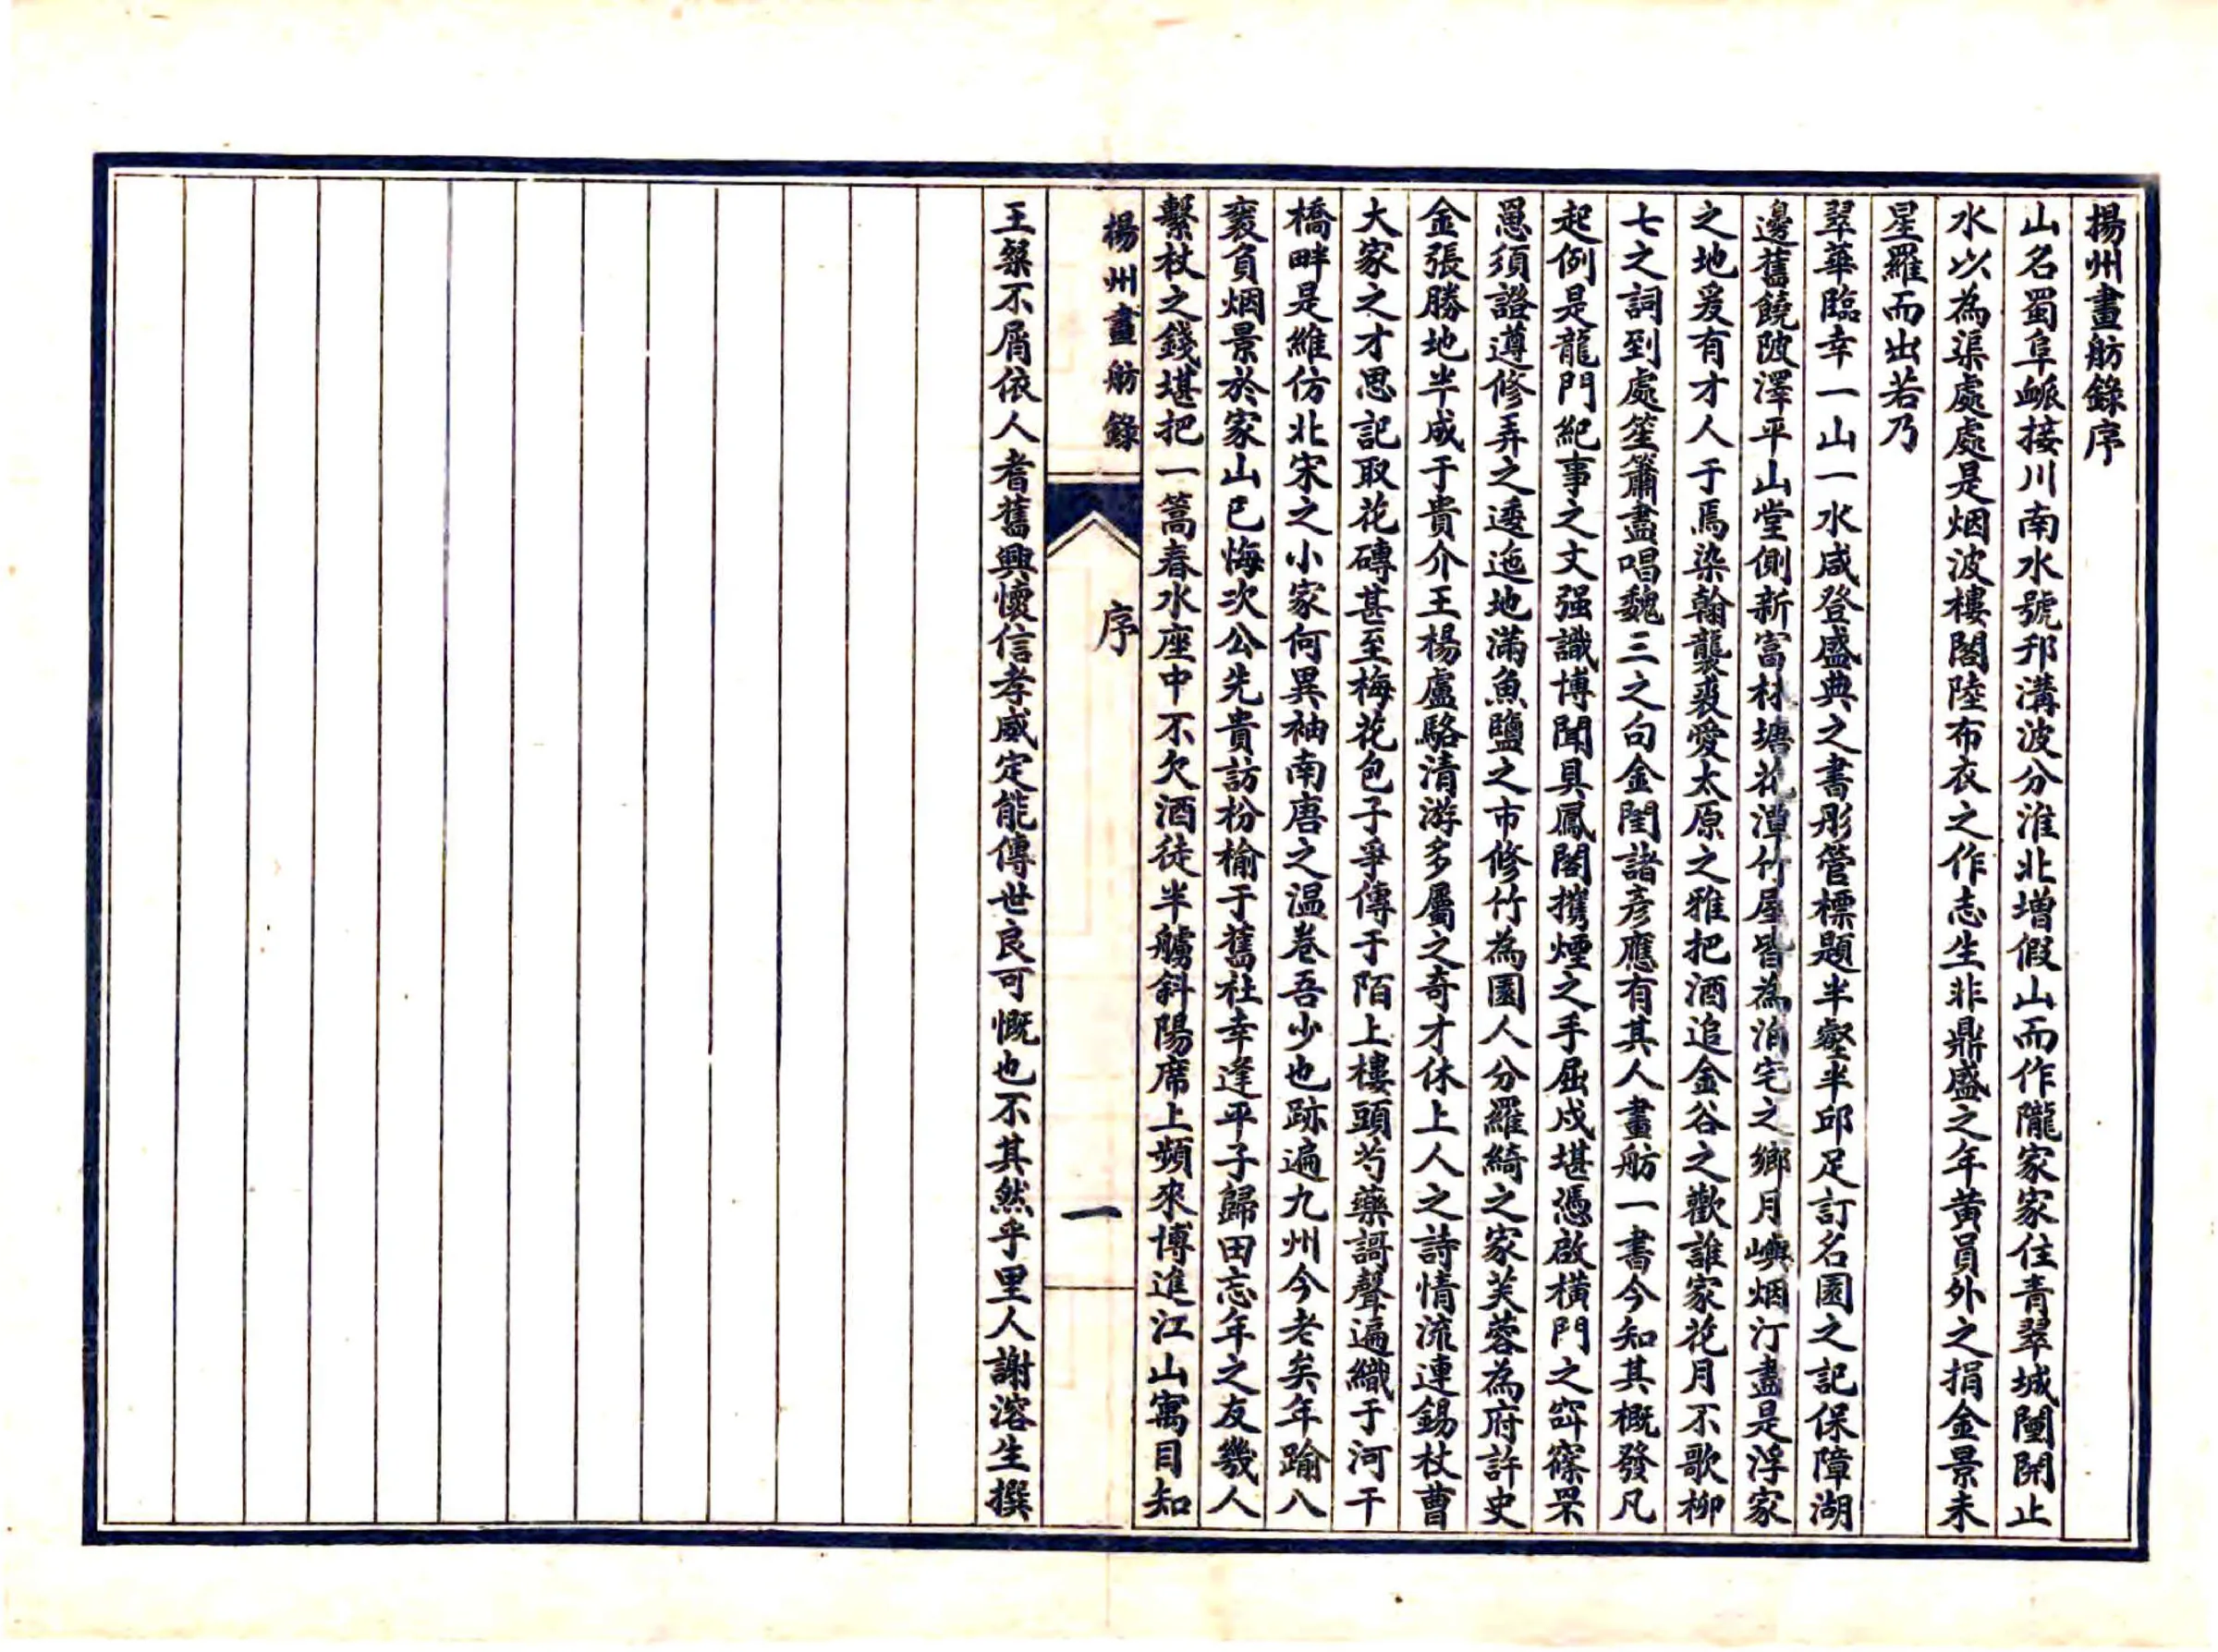 揚州畫舫錄序
山名蜀阜衇接川南水號邗溝波分淮北增假山而作隴家家住青翠城闉開止
水以為渠處處是烟波樓閣陸布衣之作志生非鼎盛之年黃員外之捐金景未
星羅而出若乃
翠華臨幸一山一水咸登盛典之書彤管標題半壑半邱足訂名園之記保障湖
邊舊饒陂澤平山堂側新富林塘花潭竹屋皆為泊宅之鄉月嶼烟汀盡是浮家
之地爰有才人于焉染翰襲裘愛太原之雅把酒追金谷之歡誰家花月不歌柳
七之詞到處笙簫盡唱魏三之句金閨諸彥應有其人畫舫一書今知其概發凡
起例是龍門紀事之文强識博聞具鳳閣攜煙之手屈戍堪憑啟橫門之窅窱罘
罳須證遵修弄之逶迤地滿魚鹽之市修竹為園人分羅綺之家芙蓉為府許史
金張勝地半成于貴介王楊盧駱清游多屬之奇才休上人之詩情流連錫杖曹
大家之才思記取花磚甚至梅花包子爭傳于陌上樓頭芍藥謌聲遍織于河干
橋畔是維仿北宋之小家何異袖南唐之温卷吾少也跡遍九州今老矣年踰八
袠負烟景於家山已悔次公先貴訪枌榆于舊社幸逢平子歸田忘年之友幾人
繫杖之錢堪把一篙春水座中不欠酒徒半艣斜陽席上頻來博進江山寓目知
揚州畫舫錄
序
一
王粲不屑依人耆舊興懷信孝威定能傳世良可慨也不其然乎里人謝溶生撰